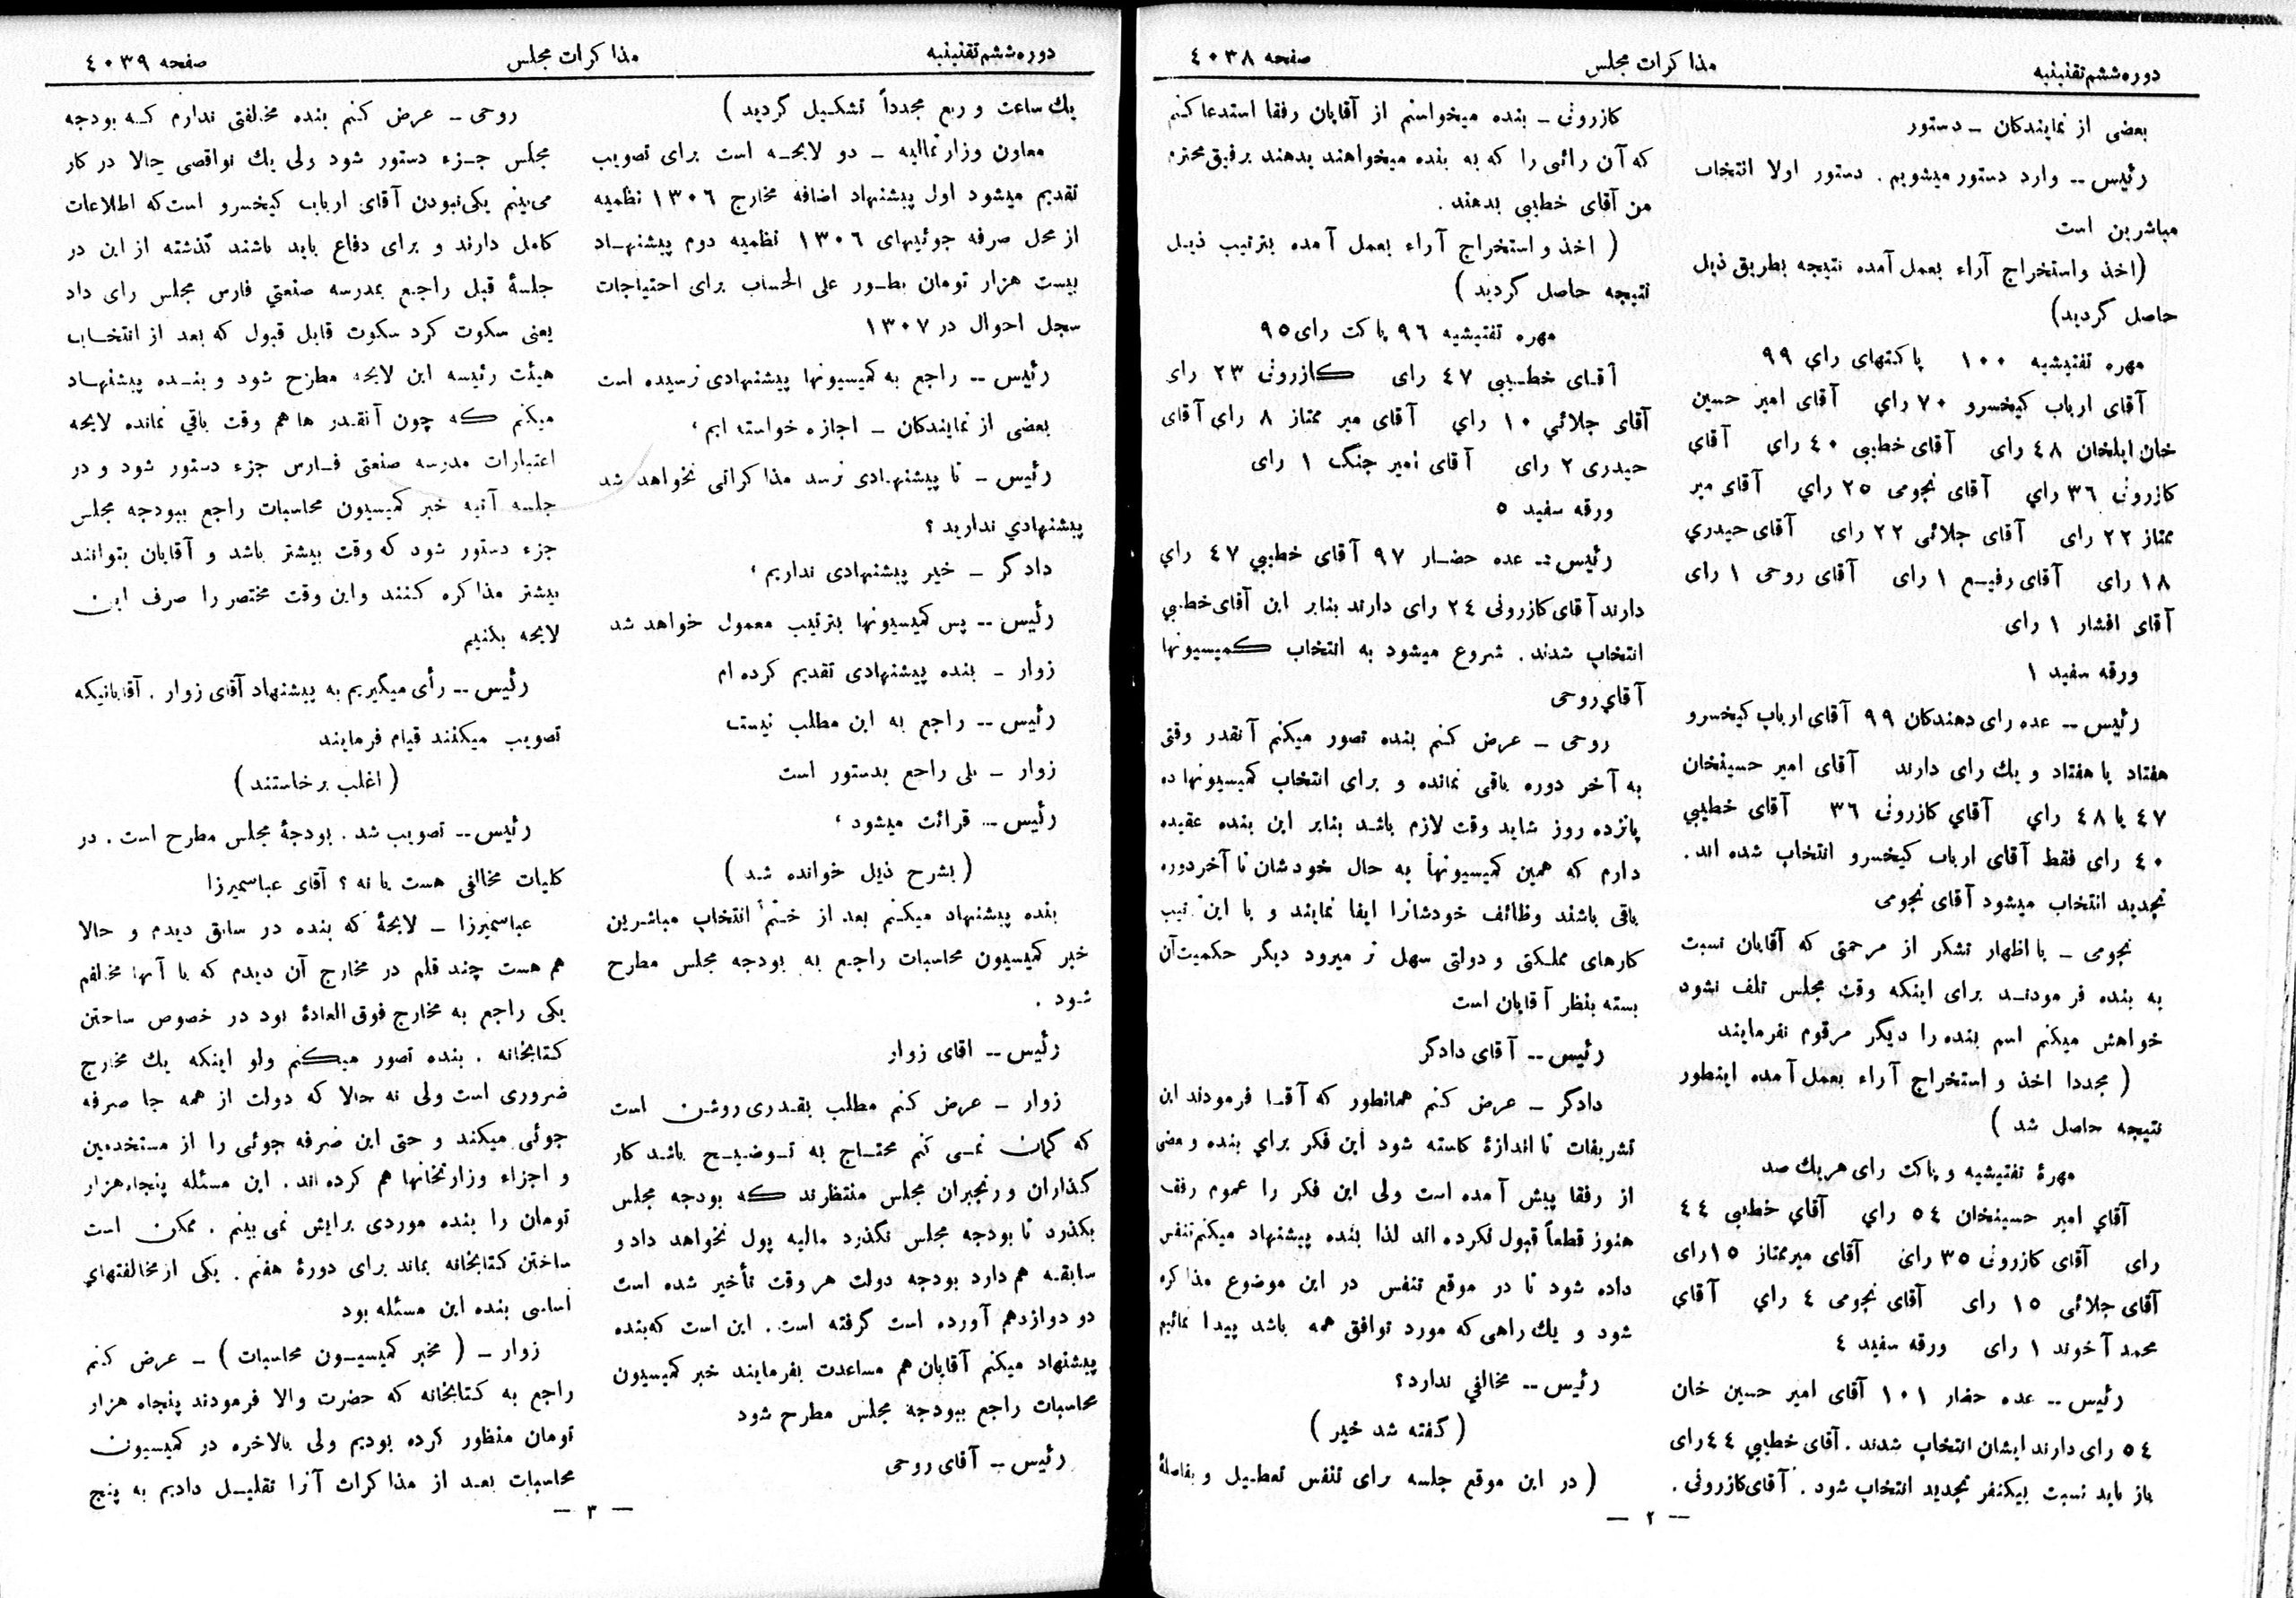 دوره ششم تقنینیه
مذاکرات مجلس
صفحه ٤٠٣٨
بعضی از نمایندکان ــ دستور
رئیس -- وارد دستور میشویم . دستور اولا انتخاب
مباشرین است
(اخذ واستخراج آراء بعمل آمده نتیجه بطریق ذیل
حاصل کردید)
مهره تفتیشیه ۱۰۰ پاکتهای رای ۹۹
آقای ارباب کیخسرو ۷۰ رای آقای امیر حسین
خان ایلخان ٤٨ رای آقای خطیبی ٤٠ رای آقای
کازرونی ۳٦ رای آقای نجومی ۲٥ رای آقای میر
ممتاز ۲۲ رای آقای جلائی ۲۲ رای آقای حیدری
۱۸ رای آقای رفیع ۱ رای آقای روحی ۱ رای
آقای افشار ۱ رای
ورقه سفید ۱
رئیس -- عده رای دهندکان ۹۹ آقای ارباب کیخسرو
هفتاد یا هفتاد و یك رای دارند آقای امیر حسینخان
٤٧ یا ٤٨ رای آقای کازرونی ۳٦ آقای خطیبی
٤٠ رای فقط آقای ارباب کیخسرو انتخاب شده اند .
تجدید انتخاب میشود آقای نجومی
نجومی ــ با اظهار تشکر از مرحمتی که آقایان نسبت
به بنده فرمودند برای اینکه وقت مجلس تلف نشود
خواهش میکنم اسم بنده را دیگر مرقوم نفرمایند
( مجددا اخذ و استخراج آراء بعمل آمده اینطور
نتیجه حاصل شد )
مهرۀ تفتیشیه و پاکت رای هریك صد
آقای امیر حسینخان ٥٤ رای آقای خطیبی ٤٤
رای آقای کازرونی ۳٥ رای آقای میرممتاز ۱٥ رای
آقای جلائی ۱٥ رای آقای نجومی ٤ رای آقای
محمد آخوند ۱ رای ورقه سفید ٤
رئیس -- عده حضار ۱۰۱ آقای امیر حسین خان
٥٤ رای دارند ایشان انتخاب شدند . آقای خطیبی ٤٤ رای
باز باید نسبت بیکنفر تجدید انتخاب شود . آقای کازرونی .
کازرونی ــ بنده میخواستم از آقایان رفقا استدعا کنم
که آن رائی را که به بنده میخواهند بدهند برفیق محترم
من آقای خطیبی بدهند .
( اخذ و استخراج آراء بعمل آمده بترتیب ذیل
نتیجه حاصل کردید )
مهره تفتیشیه ۹٦ پاکت رای ۹٥
آقای خطیبی ٤٧ رای کازرونی ۲۳ رای
آقای جلائی ۱۰ رای آقای میر ممتاز ۸ رای آقای
حیدری ۲ رای آقای امیر جنگ ۱ رای
ورقه سفید ٥
رئیس -- عده حضار ۹۷ آقای خطیبی ٤٧ رای
دارند آقای کازرونی ۲٤ رای دارند بنابر این آقای خطیبی
انتخاب شدند . شروع میشود به انتخاب کمیسیونها
آقای روحی
روحی ــ عرض کنم بنده تصور میکنم آنقدر وقتی
به آخر دوره باقی نمانده و برای انتخاب کمیسیونها ده
پانزده روز شاید وقت لازم باشد بنابر این بنده عقیده
دارم که همین کمیسیونها به حال خودشان تا آخر دوره
باقی باشند وظائف خودشانرا ایفا نمایند و با این
کارهای مملکتی و دولتی سهل تر میرود دیگر حکمیت آن
بسته بنظر آقایان است
رئیس -- آقای دادگر
دادگر ــ عرض کنم همانطور که آقا فرمودند این
تشریفات تا اندازۀ کاسته شود این فکر برای بنده و بعضی
از رفقا پیش آمده است ولی این فکر را عموم رفقا
هنوز قطعاً قبول نکرده اند لذا بنده پیشنهاد میکنم تنفس
داده شود تا در موقع تنفس در این موضوع مذاکره
شود و یك راهی که مورد توافق همه باشد پیدا نمائیم
رئیس -- مخالفی ندارد؟
( گفته شد خیر )
( در این موقع جلسه برای تنفس تعطیل و بفاصلۀ
— ۲ —
دوره ششم تقنینیه
مذاکرات مجلس
صفحه ٤٠٣٩
یك ساعت و ربع مجدداً تشکیل گردید )
معاون وزارتمالیه ــ دو لایحه است برای تصویب
تقدیم میشود اول پیشنهاد اضافه مخارج ۱۳۰٦ نظمیه
از محل صرفه جوئیهای ۱۳۰٦ نظمیه دوم پیشنهاد
بیست هزار تومان بطور علی الحساب برای احتیاجات
سجل احوال در ۱۳۰۷
رئیس -- راجع به کمیسیونها پیشنهادی نرسیده است
بعضی از نمایندکان ــ اجازه خواسته ایم ،
رئیس ــ تا پیشنهادی نرسد مذاکراتی نخواهد شد
پیشنهادی ندارید ؟
دادگر ــ خیر پیشنهادی نداریم ،
رئیس -- پس کمیسیونها بترتیب معمول خواهد شد
زوار ــ بنده پیشنهادی تقدیم کرده ام
رئیس -- راجع به این مطلب نیست
زوار ــ بلی راجع بدستور است
رئیس -- قرائت میشود ،
( بشرح ذیل خوانده شد )
بنده پیشنهاد میکنم بعد از ختم انتخاب مباشرین
خبر کمیسیون محاسبات راجع به بودجه مجلس مطرح
شود .
رئیس -- اقای زوار
زوار ــ عرض کنم مطلب بقدری روشن است
که گمان نمی کنم محتاج به توضیح باشد کار
گذاران و رنجبران مجلس منتظرند که بودجه مجلس
بگذرد تا بودجه مجلس نگذرد مالیه پول نخواهد داد و
سابقه هم دارد بودجه دولت هر وقت تأخیر شده است
دو دوازدهم آورده است گرفته است . این است که بنده
پیشنهاد میکنم آقایان هم مساعدت بفرمایند خبر کمیسیون
محاسبات راجع ببودجه مجلس مطرح شود
رئیس ــ آقای روحی
روحی ــ عرض کنم بنده مخالفتی ندارم که بودجه
مجلس جزء دستور شود ولی یك نواقصی حالا در کار
می‌بینم یکی نبودن آقای ارباب کیخسرو است که اطلاعات
کامل دارند و برای دفاع باید باشند گذشته از این در
جلسۀ قبل راجع بمدرسه صنعتی فارس مجلس رای داد
یعنی سکوت کرد سکوت قابل قبول که بعد از انتخاب
هیئت رئیسه این لایحه مطرح شود و بنده پیشنهاد
میکنم که چون آنقدر ها هم وقت باقی نمانده لایحه
اعتبارات مدرسه صنعتی فارس جزء دستور شود و در
جلسه آتیه خبر کمیسیون محاسبات راجع ببودجه مجلس
جزء دستور شود که وقت بیشتر باشد و آقایان بتوانند
بیشتر مذاکره کنند و این وقت مختصر را صرف این
لایحه بکنیم
رئیس -- رأی میگیریم به پیشنهاد آقای زوار . آقایانیکه
تصویب میکنند قیام فرمایند
( اغلب برخاستند )
رئیس -- تصویب شد . بودجۀ مجلس مطرح است . در
کلیات مخالفی هست یا نه ؟ آقای عباسمیرزا
عباسمیرزا ــ لایحۀ که بنده در سابق دیدم و حالا
هم هست چند قلم در مخارج آن دیدم که با آنها مخالفم
یکی راجع به مخارج فوق العادۀ بود در خصوص ساختن
کتابخانه . بنده تصور میکنم ولو اینکه یك مخارج
ضروری است ولی نه حالا که دولت از همه جا صرفه
جوئی میکند و حتی این صرفه جوئی را از مستخدمین
و اجزاء وزارتخانها هم کرده اند . این مسئله پنجاه هزار
تومان را بنده موردی برایش نمی بینم . ممکن است
ساختن کتابخانه بماند برای دورۀ هفتم . یکی از مخالفتهای
اساسی بنده این مسئله بود
زوار ــ ( مخبر کمیسیون محاسبات ) ــ عرض کنم
راجع به کتابخانه که حضرت والا فرمودند پنجاه هزار
تومان منظور کرده بودیم ولی بالاخره در کمیسیون
محاسبات بعد از مذاکرات آنرا تقلیل دادیم به پنج
— ۳ —